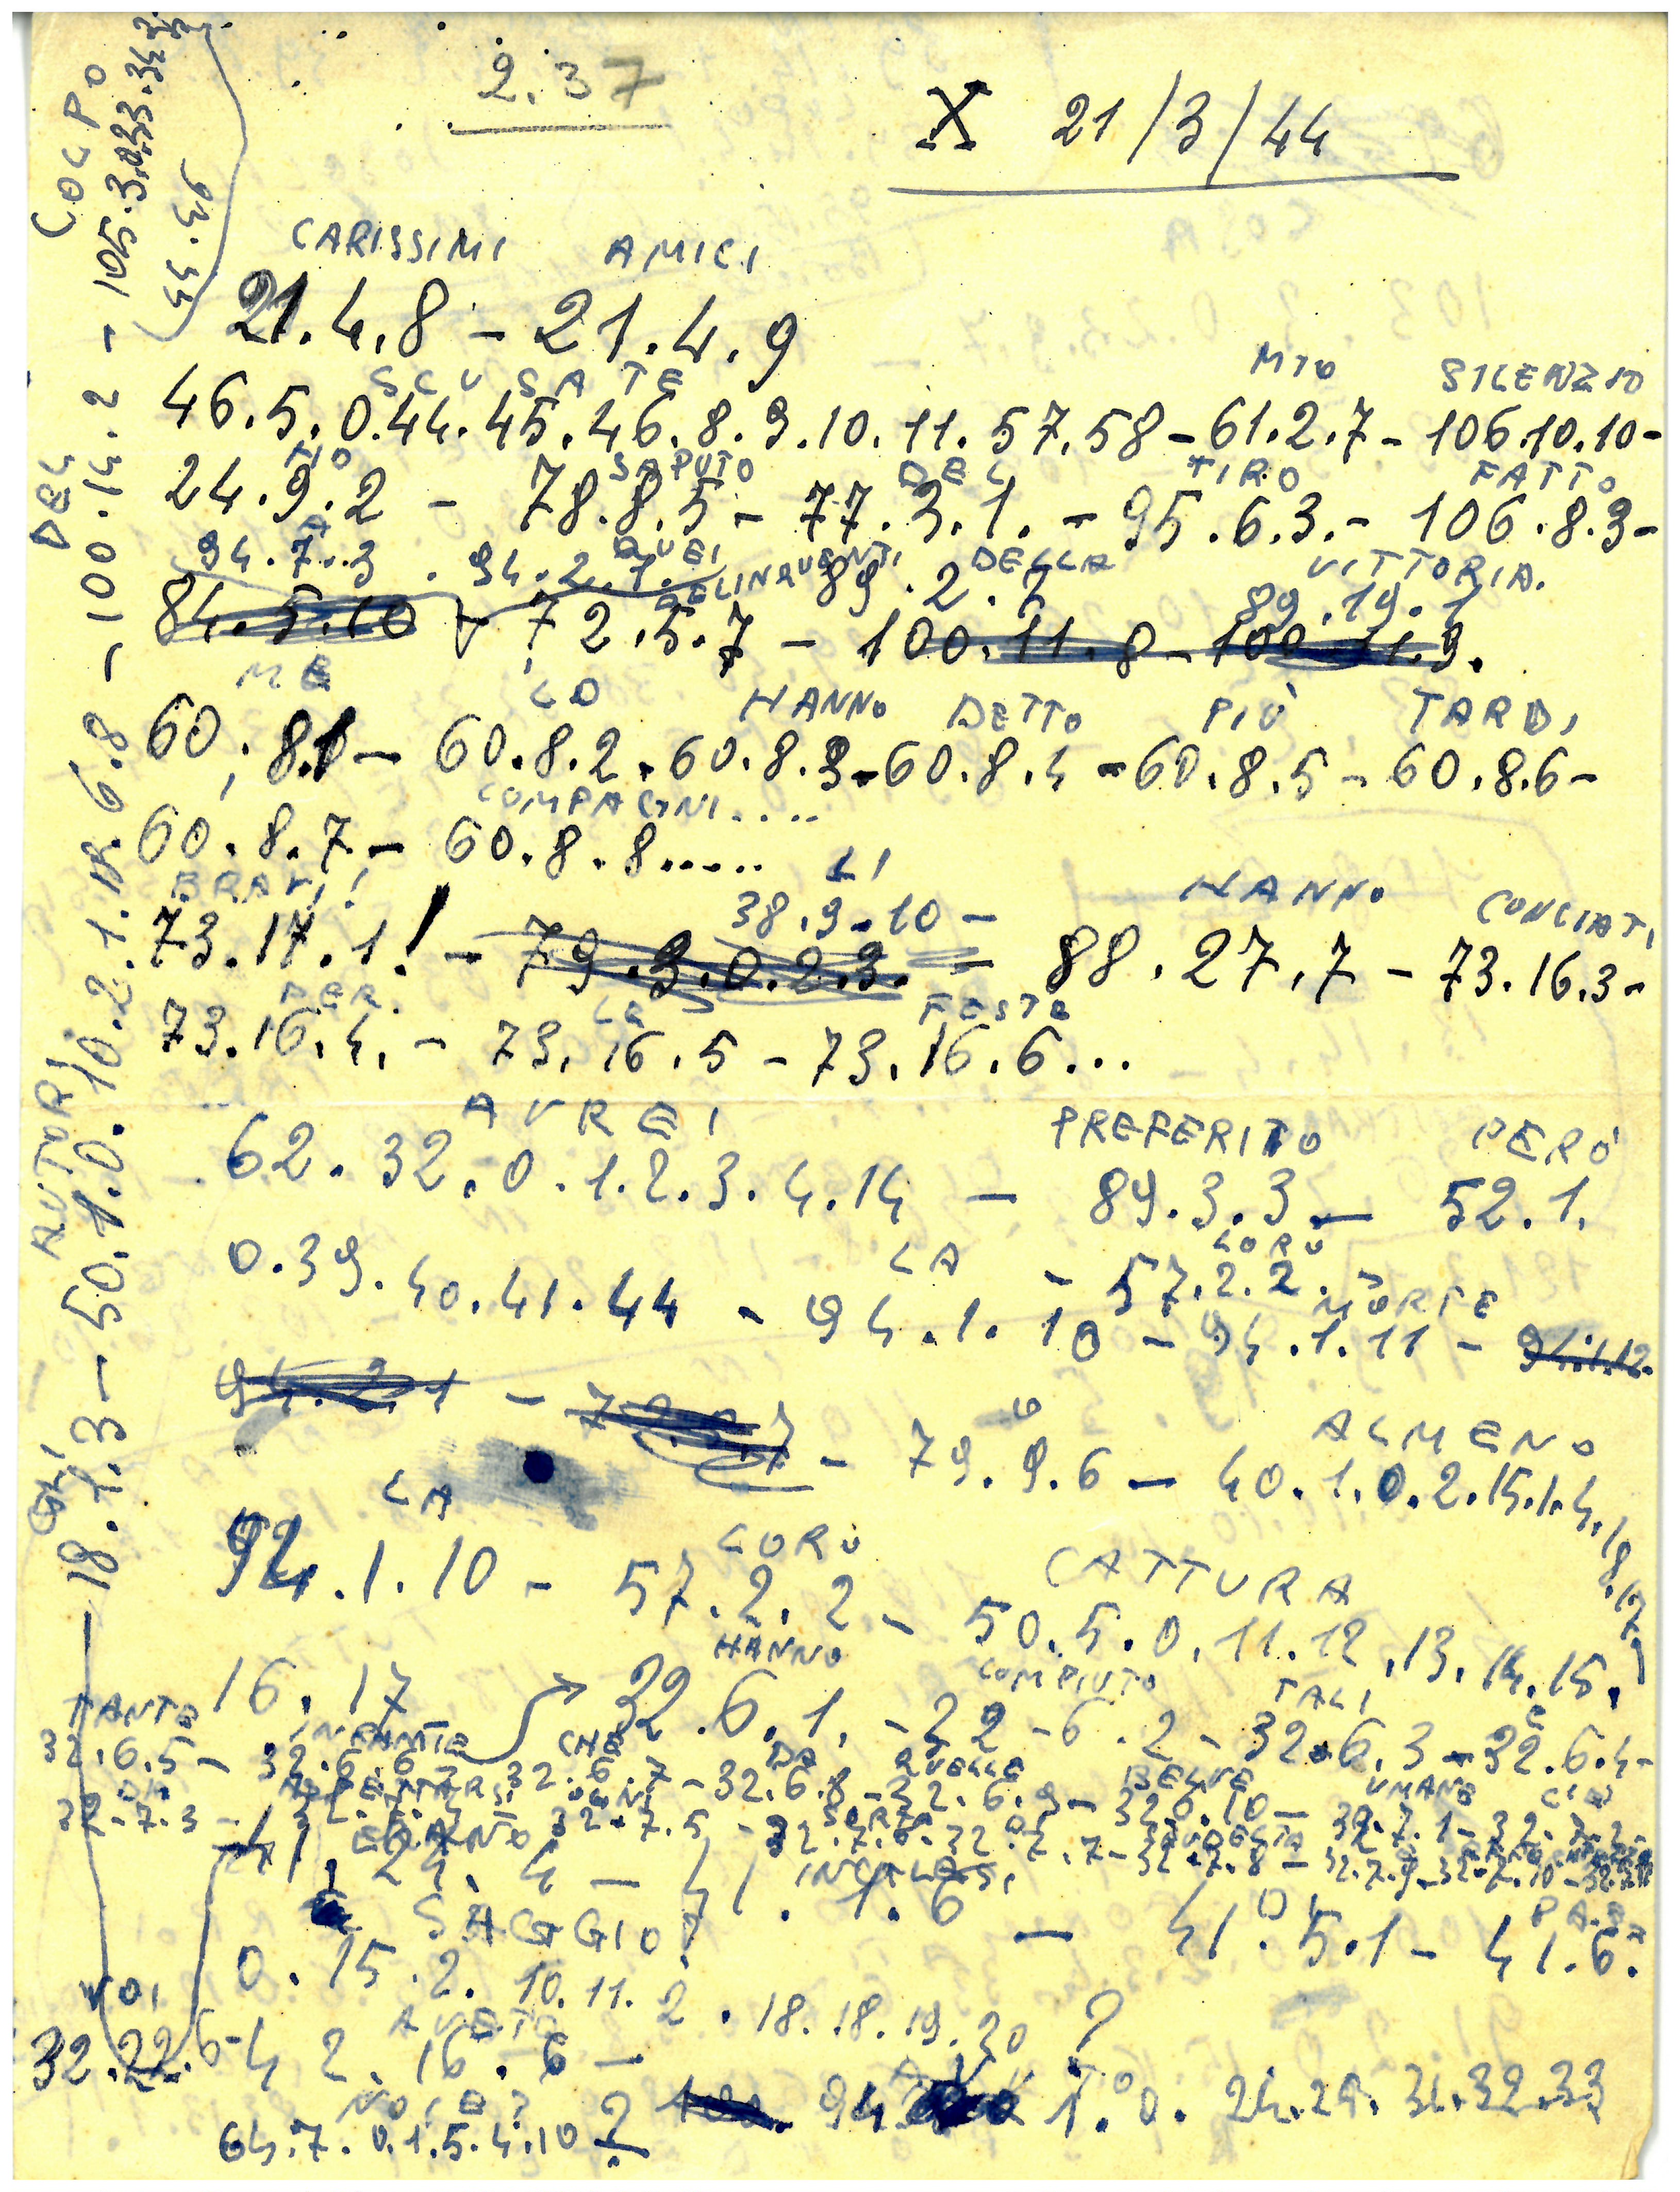 2.37
X 21/3/44
CARISSIMI AMICI
21.4.8 - 21.4.9
SCUSATE MIO SILENZIO
46.5.0.44.45.46.8.9.10.11.57.58 - 61.2.7 - 106.10.10 -
HO SAPUTO DEL TIRO FATTO
24.9.2 - 78.8.5 - 77.3.1. - 95.6.3. - 106.8.3 -
A QUEI DELINQUENTI DELLA VITTORIA.
94.7.3 . 94.2.7. 89.2.7 89.19.1
84.5.10 - 72.5.7 - 100.11.8 - 100.11.9.
ME LO HANNO DETTO PIÙ TARDI
60.8.1 - 60.8.2 . 60.8.3 - 60.8.4 - 60.8.5 - 60.8.6 -
COMPAGNI....
60.8.7 - 60.8.8.....
BRAVI! LI HANNO CONCIATI
38.9.10 -
73.17.1! - 79.3.0.2.3. - 88.27.7 - 73.16.3 -
PER LE FESTE
73.16.4. - 73.16.5 - 73.16.6...
AVREI PREFERITO PERÒ
62.32.0.1.2.3.4.14 - 89.3.3 - 52.1.
LA LORO MORTE
- 57.2.2. -
0.39.40.41.44 - 94.1.10 - 94.1.11 - 94.1.12.
O ALMENO
94.2.1 - - 79.9.6 - 40.1.0.2.15.1.4.
LA LORO CATTURA
94.1.10 - 57.2.2 - 50.5.0.11.12.13.14.15.
HANNO COMPIUTO TALI E
16.17 → 32.6.1. - 22-6.2 - 32.6.3 - 32.6.4 -
TANTO INFAMIE CHE DA QUELLE BELVE UMANE C'È
32.6.5 - 32.6.6 - 32.6.7 - 32.6.8 - 32.6.9 - 32.6.10 - 32.7.1 - 32.7.2.
DA ASPETTARSI OGNI SORTA DI
32.7.3 - 32.7.4 32.7.5 - 32.7.6 - 32.7.7 - 32.7.8 - 32.7.9 - 32.7.10 -
ERANO INGLESI DI
41.24.4 - 41.1.6 - 41.5.1 - 41.6.
SAGGIO?
0.15.2.10.11.2.18.18.19.20?
VOI AVETE
32.22.6 - 42.16.6 -
NOIE?
64.7.0.1.5.4.10? 94. 1.0.24.29.31.32.33
GLI AUTORI DEL COLPO
18.1.3 - 50.1.0.10.2.1.18.6.8 - 100.14.2 - 105.3.0.33.34.
44.46